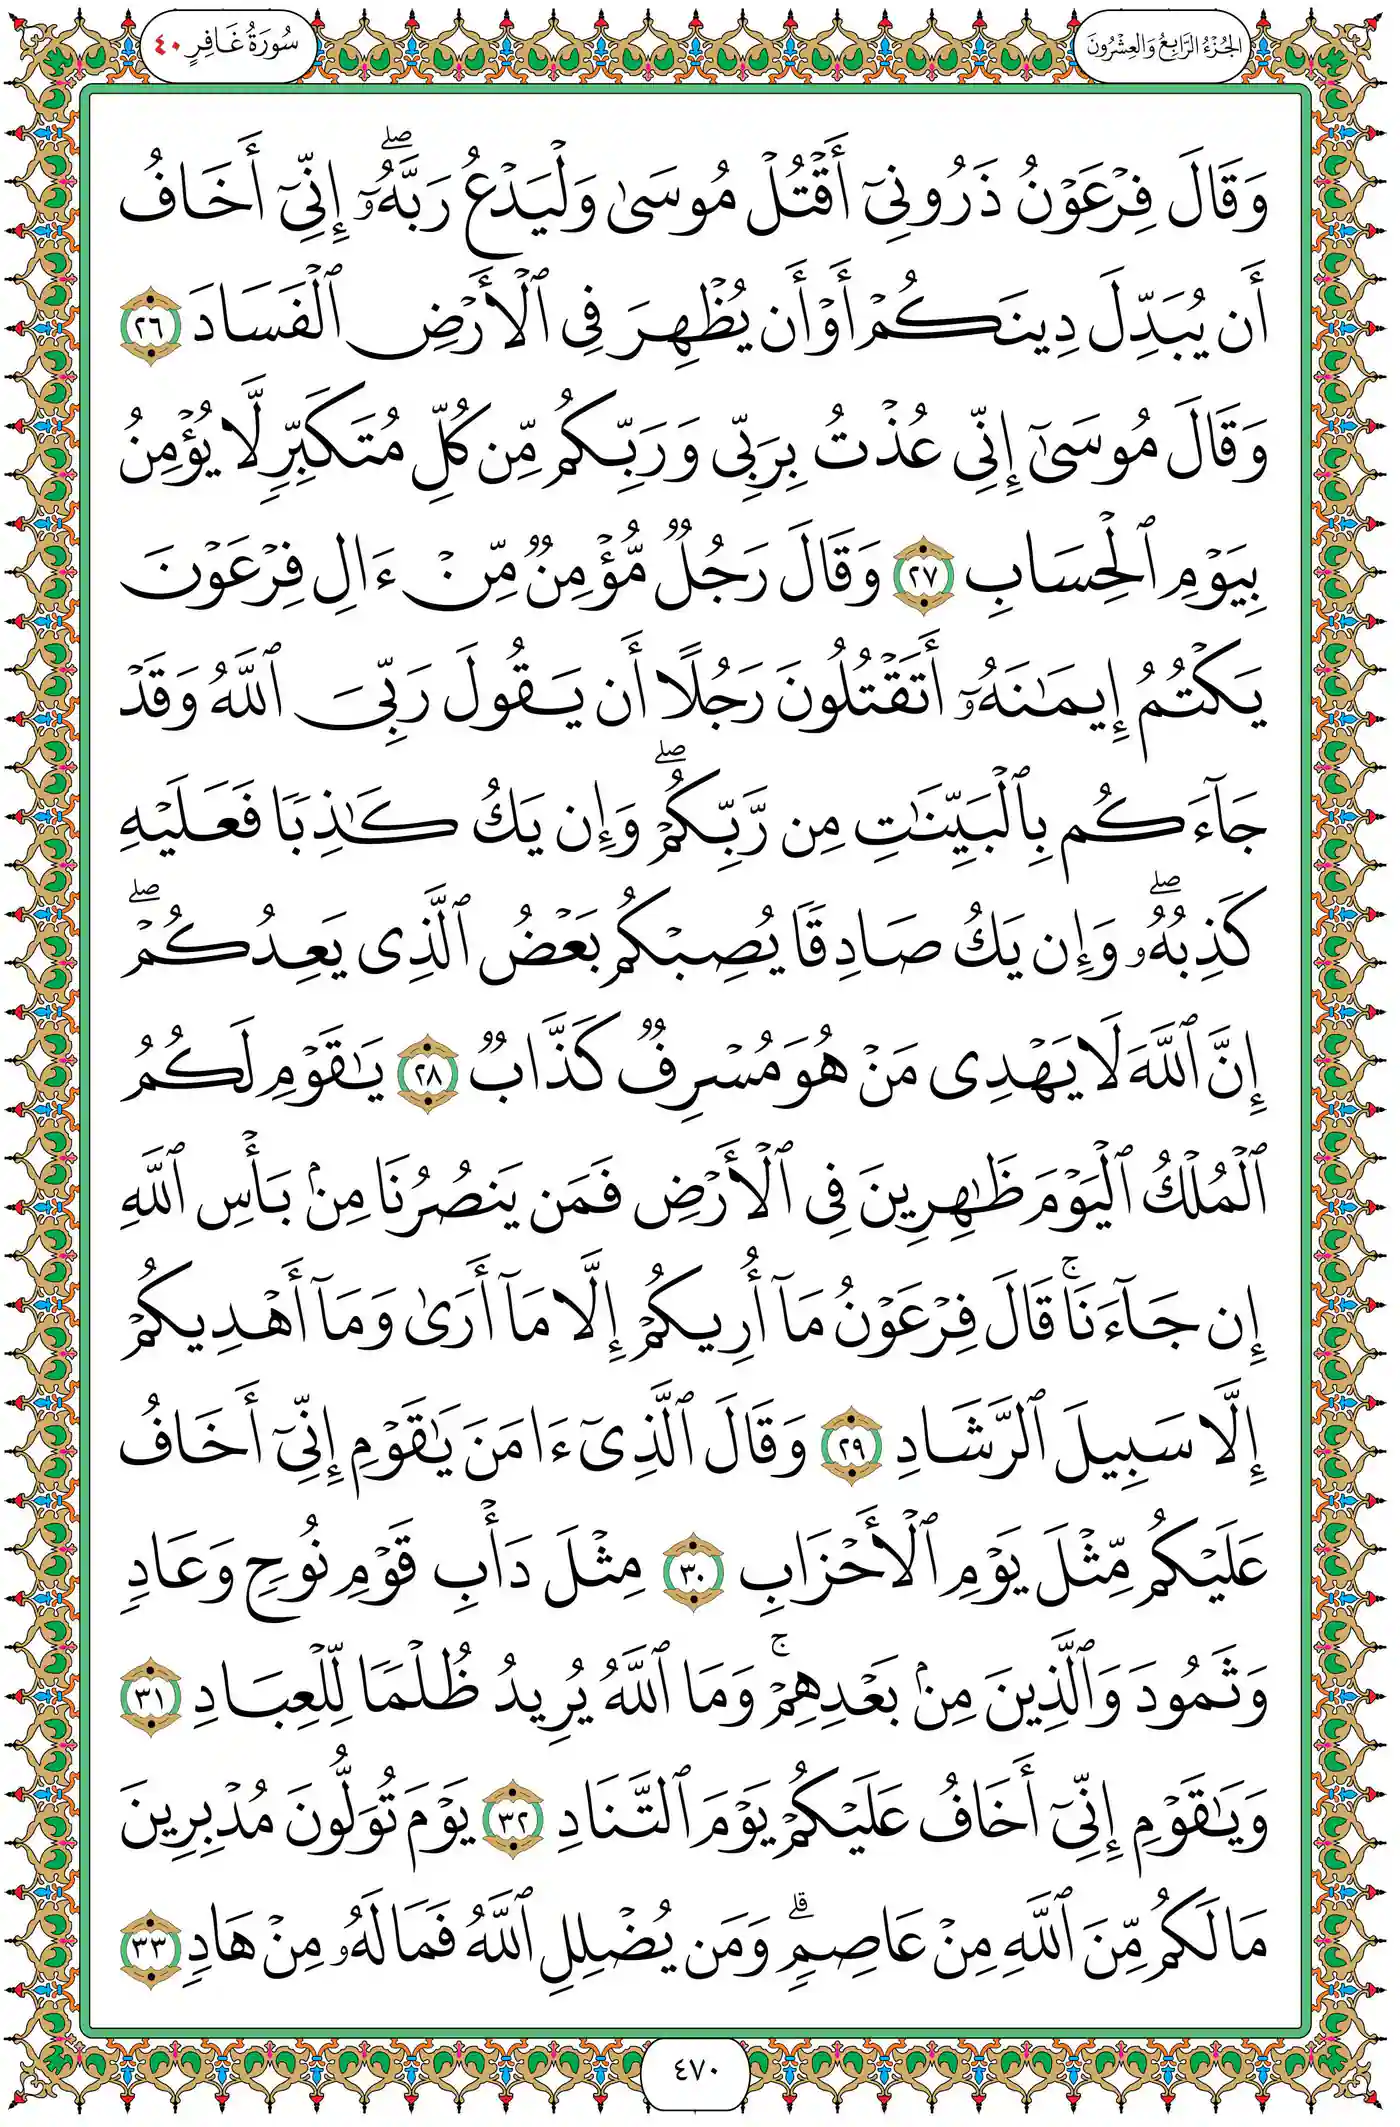 سُورَةُ غَافِرٍ ٤٠
الجُزْءُ الرَّابِعُ وَالعِشْرُونَ
وَقَالَ فِرْعَوْنُ ذَرُونِيٓ أَقْتُلْ مُوسَىٰ وَلْيَدْعُ رَبَّهُۥٓۖ إِنِّيٓ أَخَافُ
أَن يُبَدِّلَ دِينَكُمْ أَوْ أَن يُظْهِرَ فِي ٱلْأَرْضِ ٱلْفَسَادَ ٢٦
وَقَالَ مُوسَىٰٓ إِنِّي عُذْتُ بِرَبِّي وَرَبِّكُم مِّن كُلِّ مُتَكَبِّرٍ لَّا يُؤْمِنُ
بِيَوْمِ ٱلْحِسَابِ ٢٧ وَقَالَ رَجُلٌ مُّؤْمِنٌ مِّنْ ءَالِ فِرْعَوْنَ
يَكْتُمُ إِيمَٰنَهُۥٓ أَتَقْتُلُونَ رَجُلًا أَن يَقُولَ رَبِّيَ ٱللَّهُ وَقَدْ
جَآءَكُم بِٱلْبَيِّنَٰتِ مِن رَّبِّكُمْۖ وَإِن يَكُ كَٰذِبًا فَعَلَيْهِ
كَذِبُهُۥۖ وَإِن يَكُ صَادِقًا يُصِبْكُم بَعْضُ ٱلَّذِي يَعِدُكُمْۖ
إِنَّ ٱللَّهَ لَا يَهْدِي مَنْ هُوَ مُسْرِفٌ كَذَّابٌ ٢٨ يَٰقَوْمِ لَكُمُ
ٱلْمُلْكُ ٱلْيَوْمَ ظَٰهِرِينَ فِي ٱلْأَرْضِ فَمَن يَنصُرُنَا مِنۢ بَأْسِ ٱللَّهِ
إِن جَآءَنَاۚ قَالَ فِرْعَوْنُ مَآ أُرِيكُمْ إِلَّا مَآ أَرَىٰ وَمَآ أَهْدِيكُمْ
إِلَّا سَبِيلَ ٱلرَّشَادِ ٢٩ وَقَالَ ٱلَّذِيٓ ءَامَنَ يَٰقَوْمِ إِنِّيٓ أَخَافُ
عَلَيْكُم مِّثْلَ يَوْمِ ٱلْأَحْزَابِ ٣٠ مِثْلَ دَأْبِ قَوْمِ نُوحٍ وَعَادٍ
وَثَمُودَ وَٱلَّذِينَ مِنۢ بَعْدِهِمْۚ وَمَا ٱللَّهُ يُرِيدُ ظُلْمًا لِّلْعِبَادِ ٣١
وَيَٰقَوْمِ إِنِّيٓ أَخَافُ عَلَيْكُمْ يَوْمَ ٱلتَّنَادِ ٣٢ يَوْمَ تُوَلُّونَ مُدْبِرِينَ
مَا لَكُم مِّنَ ٱللَّهِ مِنْ عَاصِمٍۗ وَمَن يُضْلِلِ ٱللَّهُ فَمَا لَهُۥ مِنْ هَادٍ ٣٣
٤٧٠